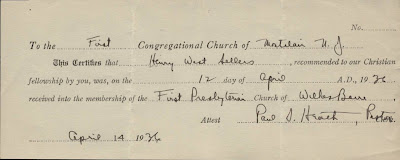 No.
To the First Congregational Church of Montclair N. J.
This Certifies that Henry West Sellers, recommended to our Christian
fellowship by you, was, on the 12 day of April A.D., 1936
received into the membership of the First Presbyterian Church of Wilkes Barre,
Attest Paul S. Heath, Pastor.
April 14 1936